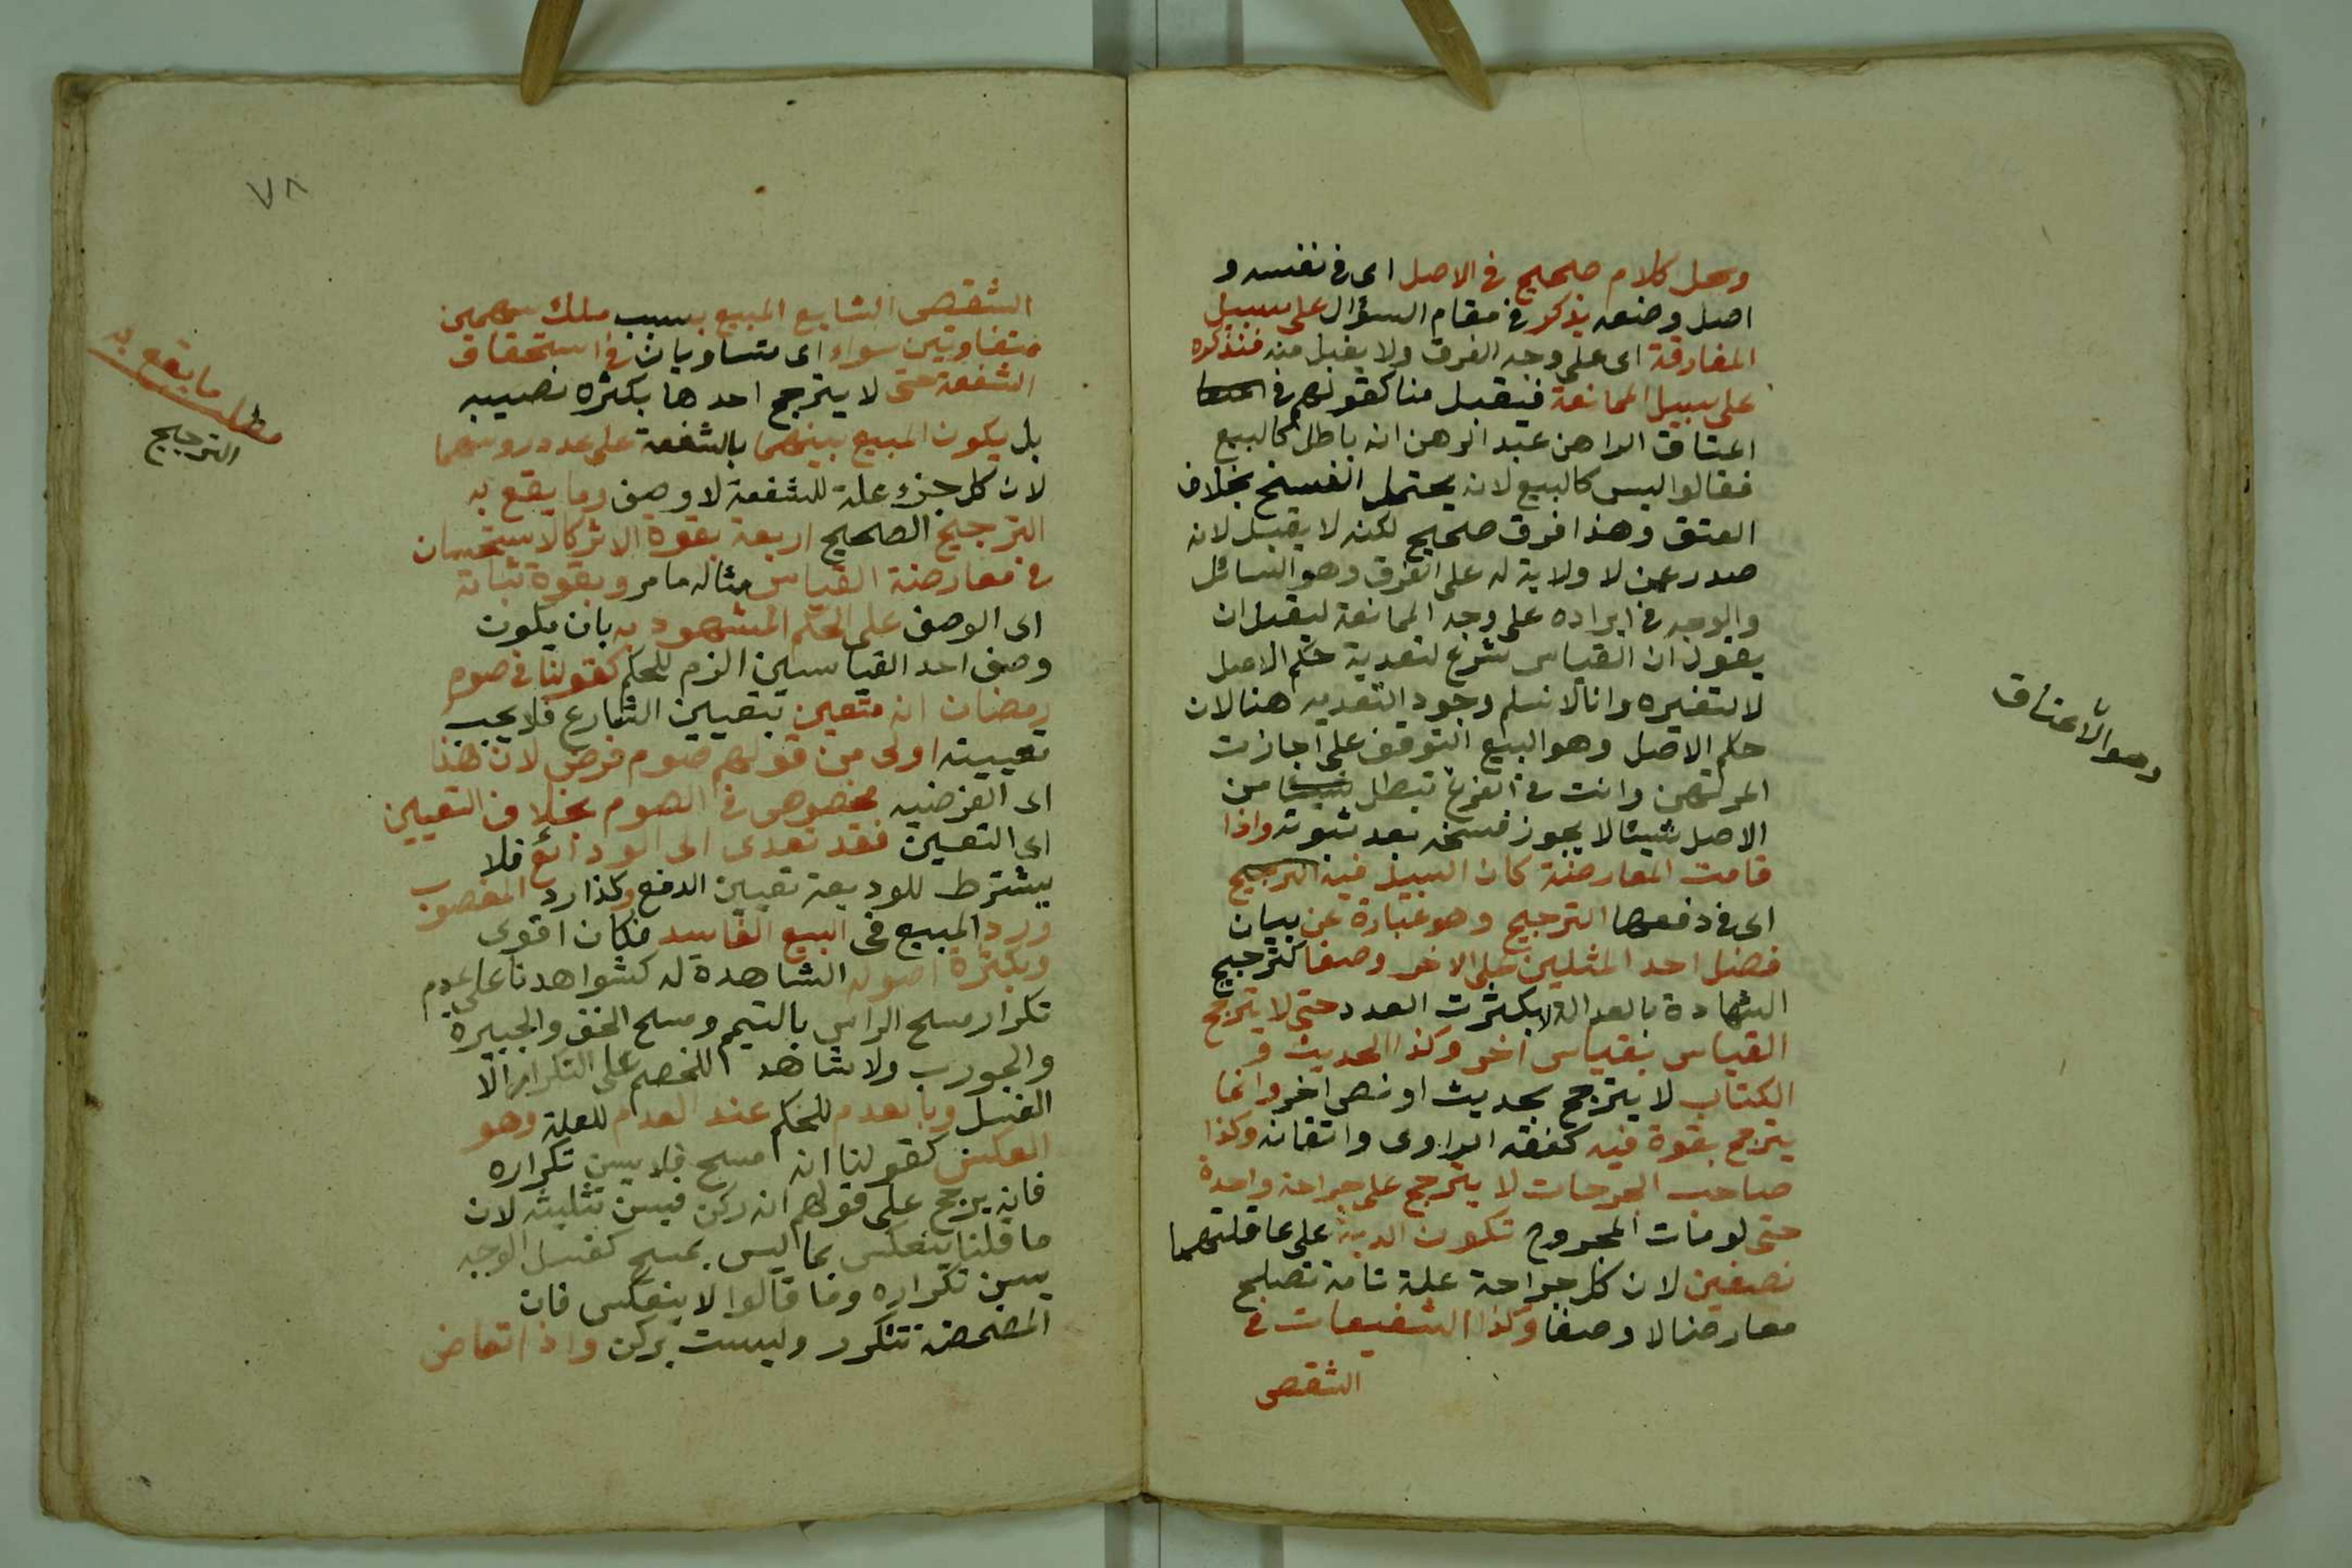 وكل كلام صحيح في الاصل اى في نفسه و
اصل وضعه يذكر في مقام السؤال على سبيل
المفارقة اى على وجه الفرق ولا يقبل منه فنذكره
على سبيل الممانعة فيقبل منا كقولهم في
اعتاق الراهن عبد الرهن انه باطل كالبيع
فقالوا ليس كالبيع لانه يحتمل الفسخ بخلاف
العتق وهذا فرق صحيح لكنه لا يقبل لانه
صدر عمن لا ولاية له على الفرق وهو السائل
والوجه في ايراده على وجه الممانعة ليقبل ان
يقول ان القياس شرع لتعدية حكم الاصل
لا لتغيره وانا لا نسلم وجود التعديه هنا لان
حكم الاصل وهو البيع التوقف على اجازت
المرتهن وانت في الفرع تبطل من
الاصل شيئا لا يجوز فسخه بعد ثبوته واذا
قامت المعارضة كان السبيل فيه الترجيح
اى في دفعها الترجيح وهو عبارة عن بيان
فضل احد المثلين على الاخر وصفا كترجيح
الشهادة بالعدالة لا بكثرت العدد حتى لا يترجح
القياس بقياس اخر وكذا الحديث و
الكتاب لا يترجح بحديث او نص اخر وانما
يترجح بقوة فيه كفقه الراوى واتقانه وكذا
صاحب الجرحات لا يترجح على جراحة واحدة
حتى لو مات المجروح تكون الدية على عاقلتهما
نصفين لان كل جراحة علة تامة تصلح
معارضا لا وصفا وكذا الشفيعات في
الشقص
وهو الاعتاق
٧٨
الشقص الشايع المبيع بسبب ملك سهمين
متفاوتين سواء اى متساويان في استحقاق
الشفعة حتى لا يترجح احدها بكثره نصيبه
بل يكون المبيع بينهما بالشفعة على عدد روسهما
لان كل جزء علة للشفعة لا وصف وما يقع به
الترجيح الصحيح اربعة بقوة الاثر كالاستحسان
في معارضة القياس مثاله مامر وبقوة ثباته
اى الوصف على الحكم المشهود به بان يكون
وصف احد القياسين الزم للحكم كقولنا في صوم
رمضان انه متعين بتعيين الشارع فلا يجب
تعيينه اولى من قولهم صوم فرض لان هذا
اى الفرضيه مخصوص في الصوم بخلاف التعيين
اى التعيين فقد تعدى الى الودائع فلا
يشترط للوديعة تعيين الدفع وكذا رد المغصوب
ورد المبيع في البيع الفاسد فكان اقوى
وبكثرة اصوله الشاهدة له كشواهدنا على عدم
تكرار مسح الراس بالتيمم ومسح الخف والجبيرة
والجورب ولا شاهد للخصم على التكرار الا
الغسل وبالعدم للحكم عند العدم للعلة وهو
العكس كقولنا انه مسح فلا يسن تكراره
فانه يرجح على قولهم انه ركن فيسن تثليثه لان
ما قلنا ينعكس بما ليس بمسح كغسل الوجه
يسن تكراره وما قالوا لا ينعكس فان
المضمضة تتكرر وليست بركن واذا تعارض
مطلب ما يقع به
الترجيح